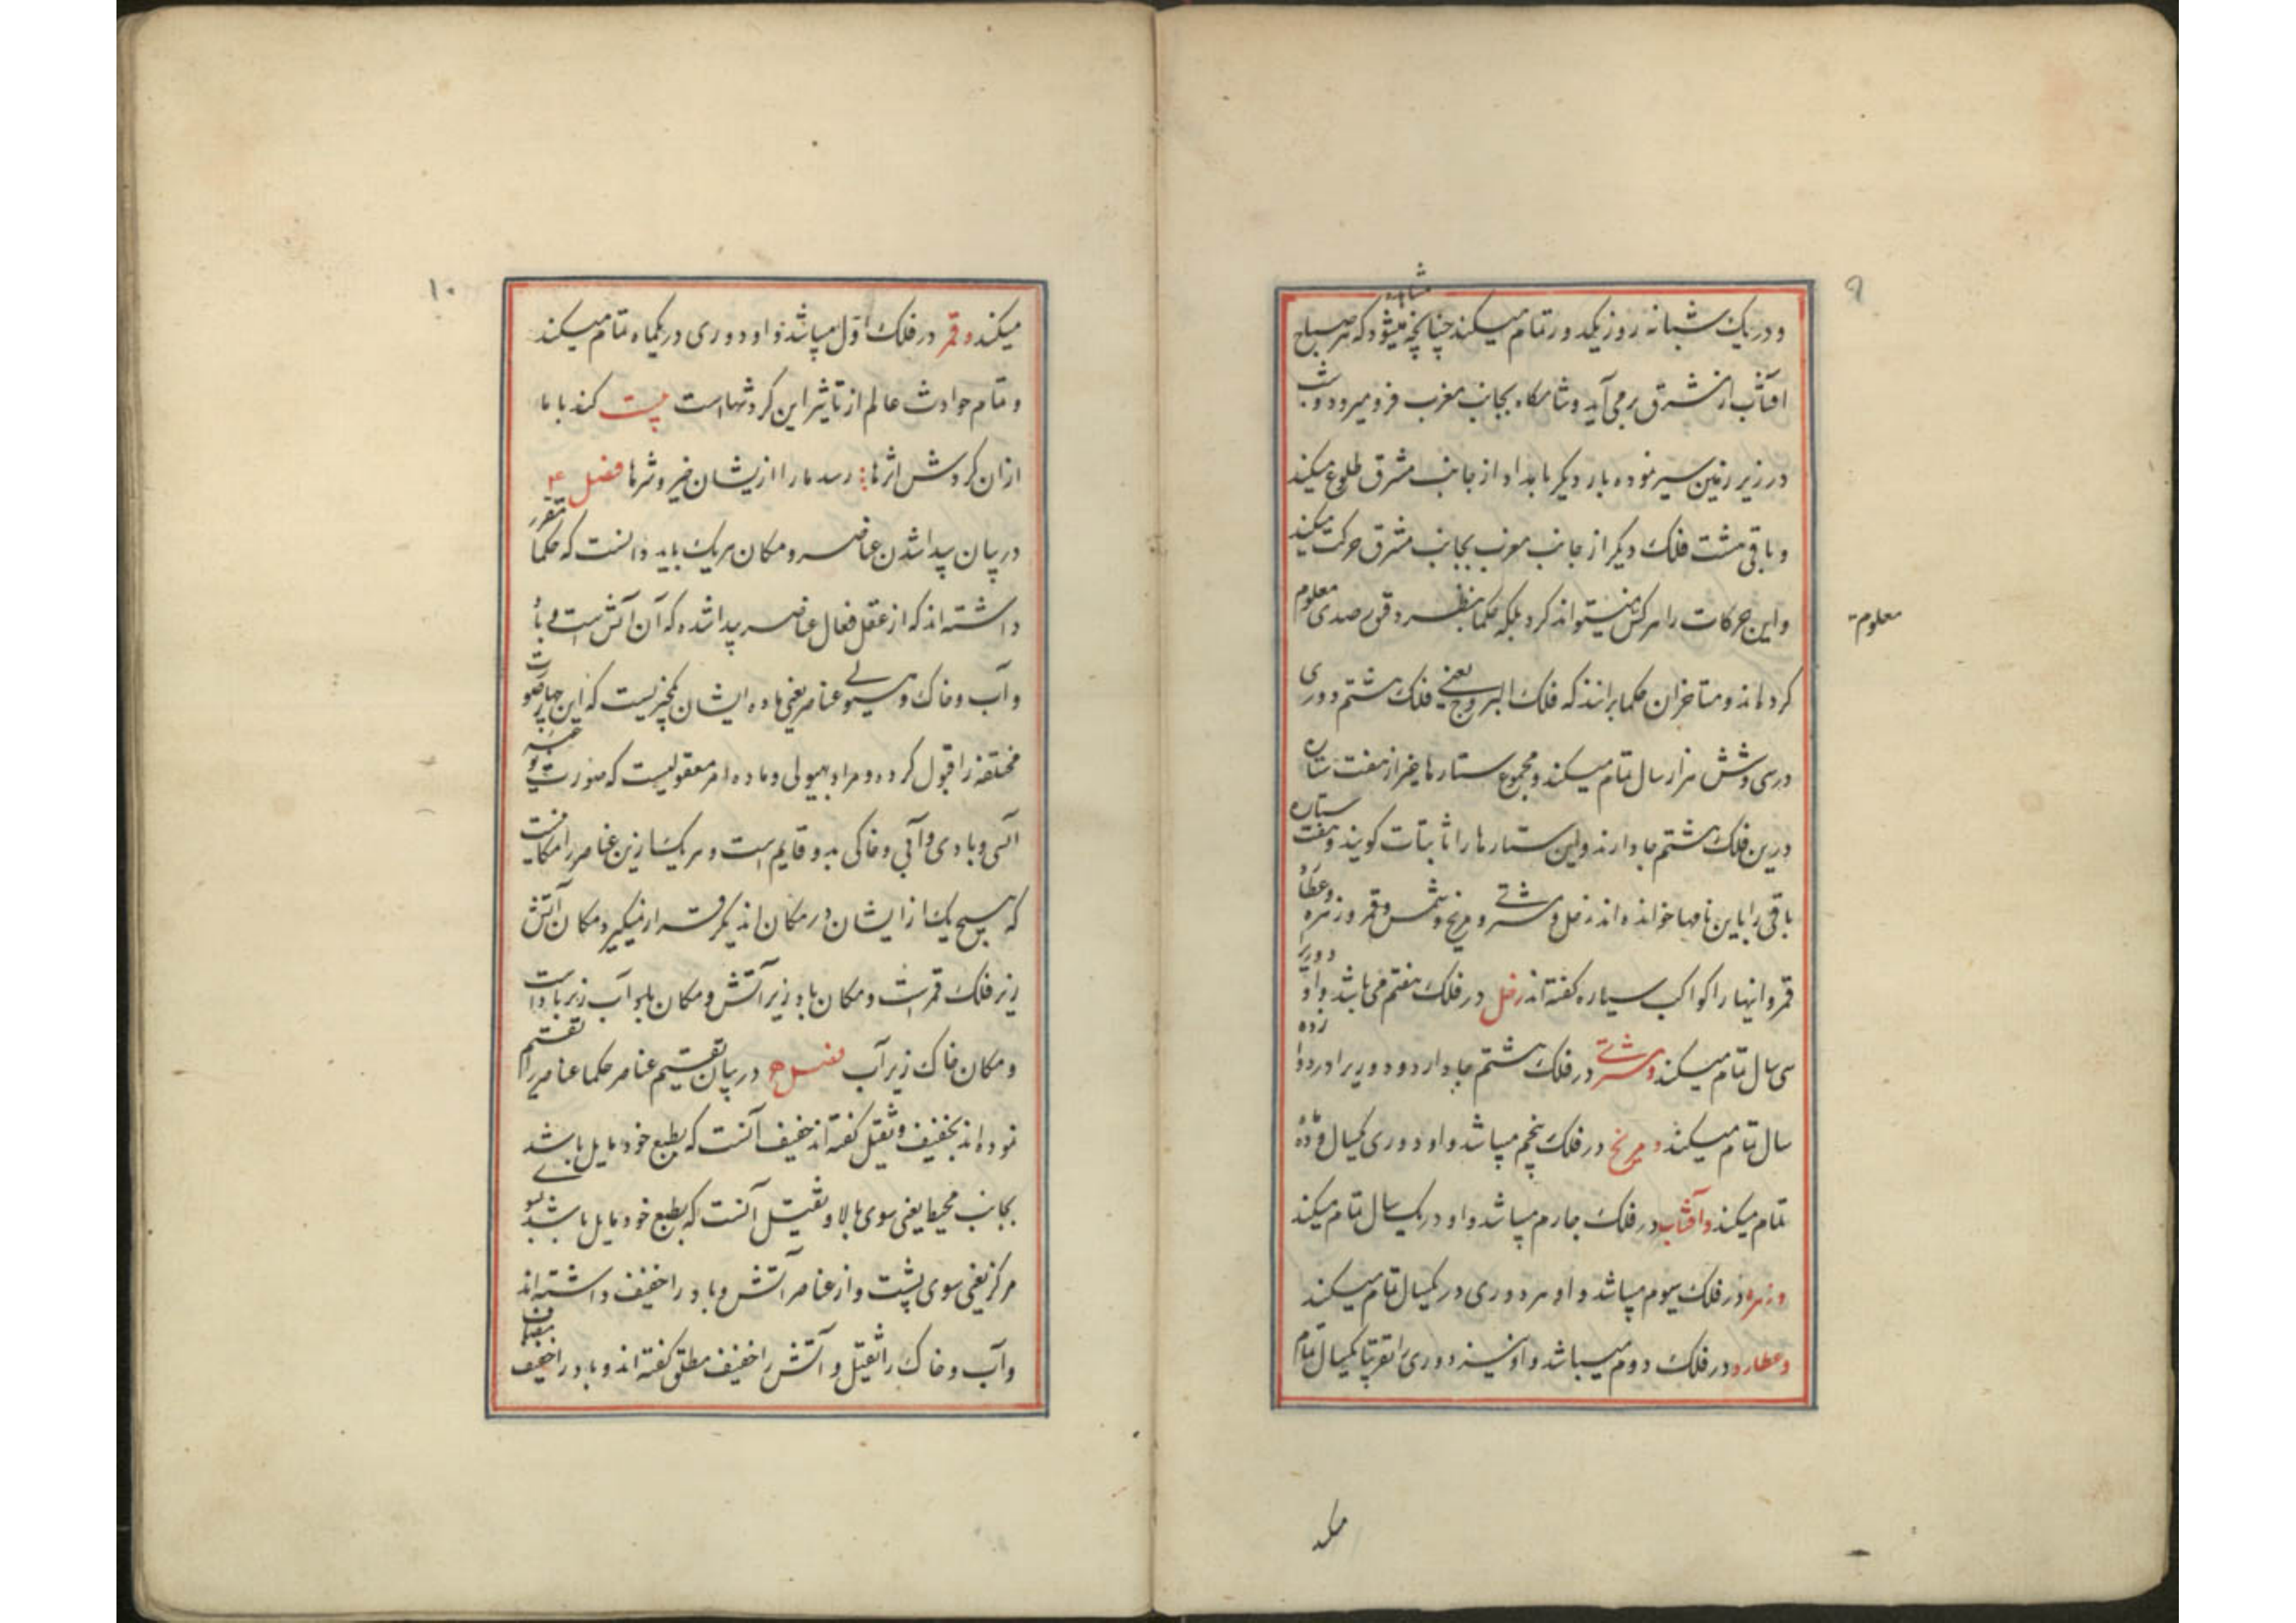 ۹
و در یک شبانه روز یکدور تمام میکند چنانچه مشاهده میشود که هر صباح
آفتاب از مشرق بر می آید و شامگاه بجانب مغرب فرو میرود و شب
در زیر زمین سیر نموده بار دیگر بامداد از جانب مشرق طلوع میکند
و باقی هشت فلک دیگر از جانب مغرب بجانب مشرق حرکت میکند
و این حرکات را هر کس نمیتواند کرد بلکه حکما بنظر دقیق رصدی معلوم
معلوم
کرده اند و متاخران حکما برانند که فلک البروج یعنی فلک هشتم دوری
در سی و شش هزار سال تمام میکند و مجموع ستارها غیر از هفت ستاره
درین فلک هشتم جا دارند و این ستارها را ثابتات کویند و هفت ستاره
باقی را باین نامها خوانده اند زحل و مشتری و مریخ و شمس و قمر و زهره و عطارد
قمر و اینها را کواکب سیاره کفته اند زحل در فلک هفتم می باشد و او دوریرا
سی سال تمام میکند و مشتری در فلک هشتم جا دارد و دوریرا در دوازده
سال تمام میکند و مریخ در فلک پنجم میباشد و او دوری یکسال و ده ماه
تمام میکند و آفتاب در فلک چارم میباشد و او در یک سال تمام میکند
و زهره در فلک سیوم میباشد و او هر دوری در یکسال تمام میکند
و عطارد در فلک دوم میباشد و او نیز دوری را تقریبا یکسال تمام
میکند
۱۰
میکند و قمر در فلک اول میباشد و او دوری در یکماه تمام میکند
و تمام حوادث عالم از تاثیر این کردشهاست بیت کند با ما
ازان کردش اثرها رسد ما را ازیشان خیر و شرها فصل ۴
در بیان پیدا شدن عناصر و مکان هر یک باید دانست که حکما مقرر
داشته اند که از عقل فعال عناصر پیدا شده که آن آتش است و باد
و آب و خاک و هیولی عناصر یعنی ماده ایشان یکچیزیست که این چهار صورت
مختلفه را قبول کرده و مراد بهیولی و ماده امر معقولیست که صورت
آتشی و بادی و آبی و خاکی بدو قایم است و هر یک ازین عناصر را مکانیست
که هیچ یک از ایشان در مکان آن دیکر قرار نمیکیرد مکان آتش
زیر فلک قمر است و مکان باد زیر آتش و مکان آب زیر باد است
و مکان خاک زیر آب فصل ۵ در بیان تقسیم عناصر حکما عناصر را تقسیم
نموده اند بخفیف و ثقیل کفته اند خفیف آنست که بطبع خود مایل باشد
بجانب محیط یعنی سوی بالا و ثقیل آنست که بطبع خود مایل باشد بسوی
مرکز یعنی سوی پشت و از عناصر آتش و باد را خفیف داشته اند
و آب و خاک را ثقیل و آتش را خفیف مطلق کفته اند و باد را خفیف مضاف